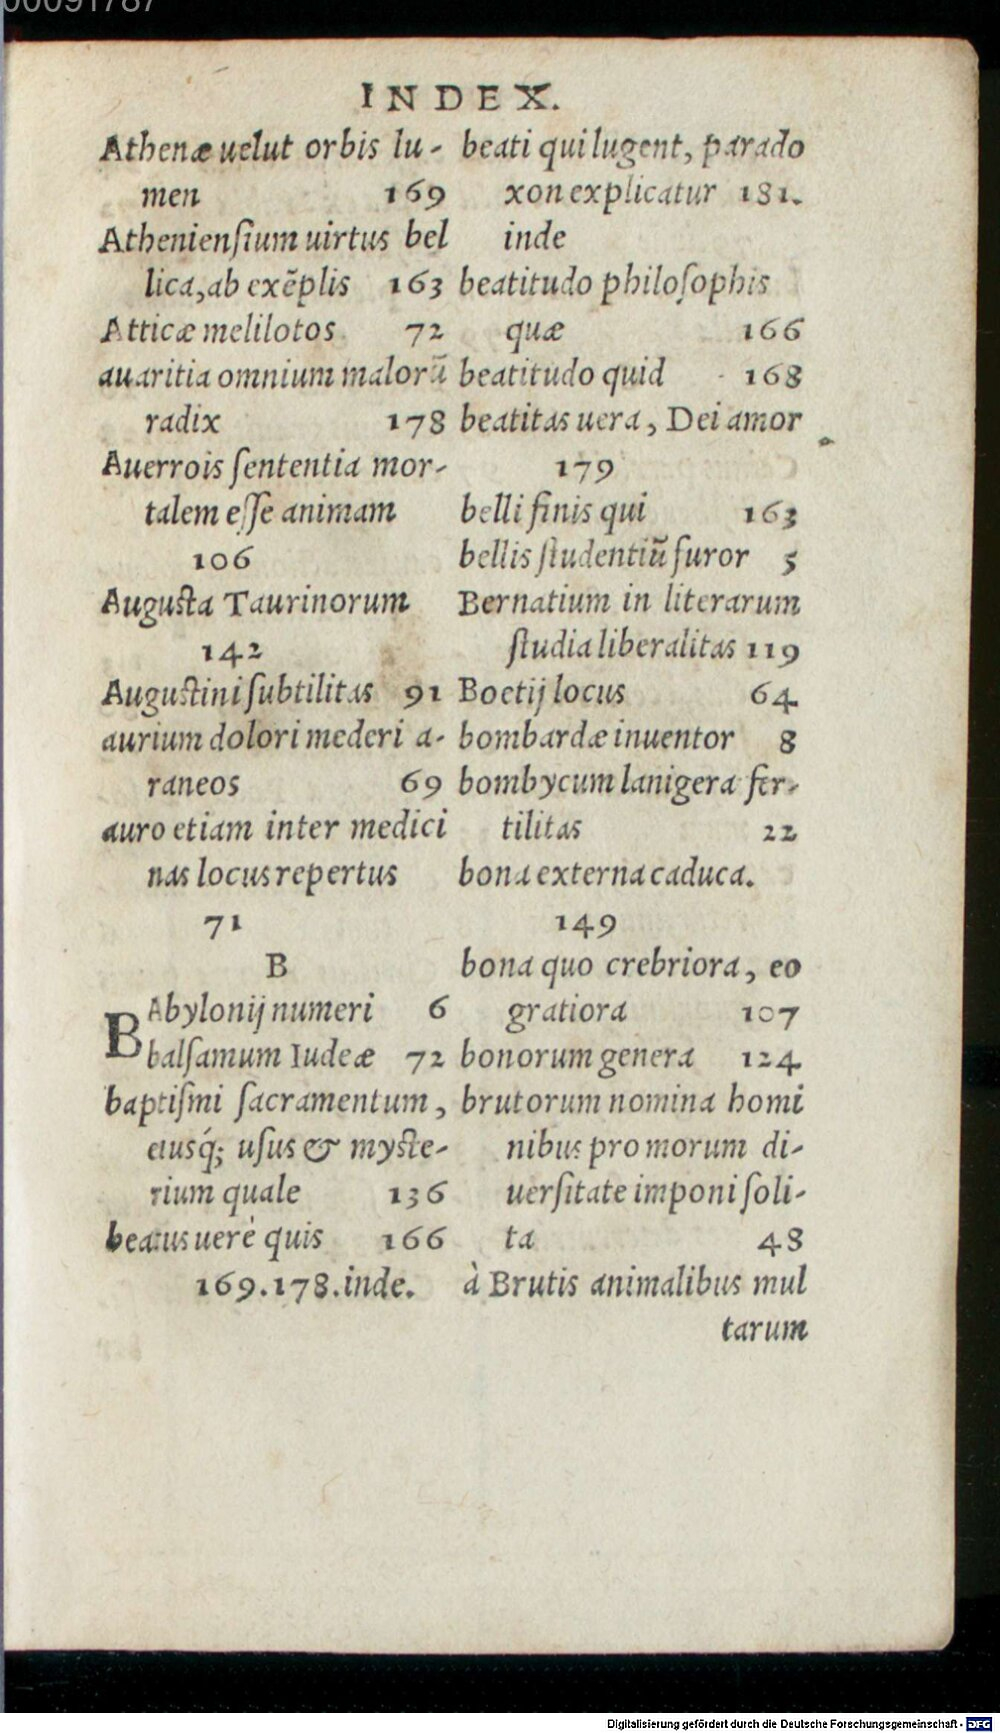 00091787
INDEX.
Athenæ uelut orbis lu-
men 169
Athenienſium uirtus bel
lica, ab exẽplis 163
Atticæ melilotos 72
auaritia omnium malorũ
radix 178
Auerrois ſententia mor-
talem eſſe animam
106
Auguſta Taurinorum
142
Auguſtini ſubtilitas 91
aurium dolori mederi a-
raneos 69
auro etiam inter medici
nas locus repertus
71
B
BAbylonij numeri 6
balſamum Iudeæ 72
baptiſmi ſacramentum,
eiusq́; uſus & myſte-
rium quale 136
beatus uerè quis 166
169.178.inde.
beati qui lugent, parado
xon explicatur 181.
inde
beatitudo philoſophis
quæ 166
beatitudo quid 168
beatitas uera, Dei amor
179
belli finis qui 163
bellis ſtudentiũ furor 5
Bernatium in literarum
ſtudia liberalitas 119
Boetij locus 64
bombardæ inuentor 8
bombycum lanigera fer-
tilitas 22
bona externa caduca.
149
bona quo crebriora, eo
gratiora 107
bonorum genera 124
brutorum nomina homi
nibus pro morum di-
uerſitate imponi ſoli-
ta 48
à Brutis animalibus mul
tarum
Digitalisierung gefördert durch die Deutsche Forschungsgemeinschaft - DFG